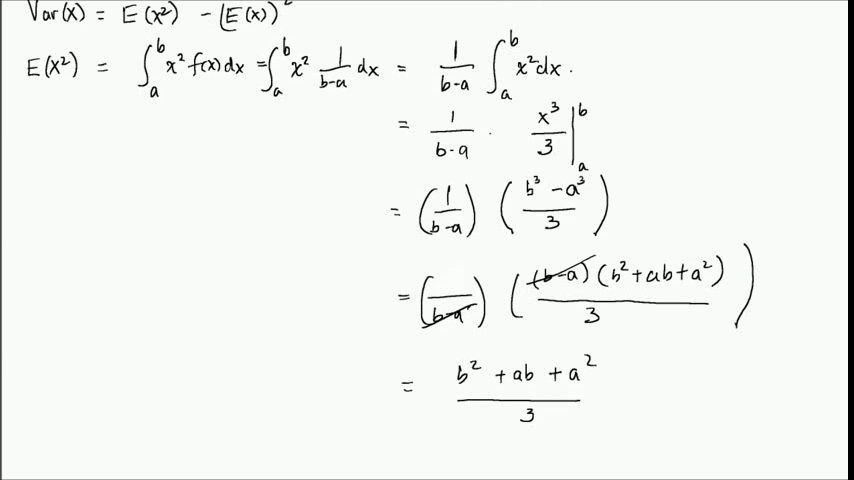 Var(X) = E(X²) - (E(X))²
E(X²) = ∫_a^b x² f(x) dx = ∫_a^b x² 1/(b-a) dx = 1/(b-a) ∫_a^b x² dx.
= 1/(b-a) · x³/3 |_a^b
= (1/(b-a)) ((b³ - a³)/3)
= (1/(b-a)) ((b-a)(b² + ab + a²)/3)
= (b² + ab + a²)/3